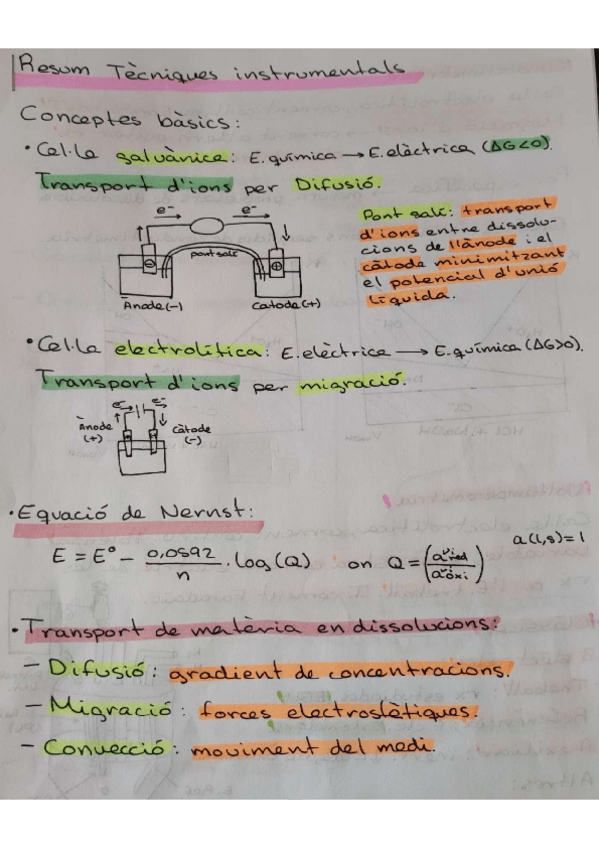 Resum Tècniques instrumentals
Conceptes bàsics:
• Cel·la galvànica: E. química → E. elèctrica (ΔG<0).
Transport d'ions per Difusió.
e⁻ e⁻
pont salí
Ànode (-) Catode (+)
Pont salí: transport
d'ions entre dissolu-
cions de l'ànode i el
càtode minimitzant
el potencial d'unió
líquida.
• Cel·la electrolítica: E. elèctrica → E. química (ΔG>0).
Transport d'ions per migració.
e⁻ e⁻
Ànode (+) Càtode (-)
• Equació de Nernst:
E = E° - 0,0592/n · log(Q) on Q = (aᵛred / aᵛoxi) a(l,s)=1
• Transport de matèria en dissolucions:
- Difusió: gradient de concentracions.
- Migració: forces electrostàtiques.
- Convecció: moviment del medi.